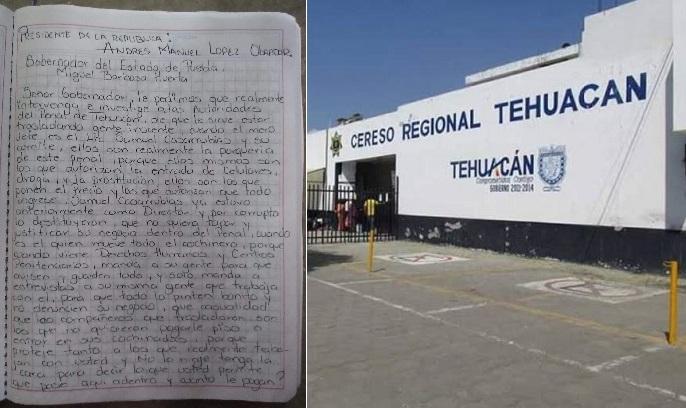 PRESIDENTE DE LA REPUBLICA:
ANDRES MANUEL LOPEZ OBRADOR.
Gobernador del Estado de Puebla
Miguel Barbosa Huerta
Señor Gobernador, le pedimos que realmente
intervenga e investigue a las autoridades
del Penal de Tehuacan, de que le sirve estar
trasladando gente inocente, cuando el mero
Jefe es el Lic. Samuel Casarrubias y su
ellos son realmente la porqueria
de este penal, porque ellos mismos son
los que autorizan la entrada de celulares,
droga, y la prostitución, ellos son los que
ponen el precio y los que autorizan que todo
ingrese, Samuel Casarrubias ya estuvo
anteriormente como Director y por corrupto
lo destituyeron, que no quiera tapar y
justificar su negocio dentro del penal, cuando
es el quien mueve todo el cochinero, porque
cuando viene Derechos Humanos y Centros
Penitenciarios, manda a su gente para que
avisen y guarden todo, y solo manda a
entrevistas a su misma gente que trabaja
con el, para que todo lo pinten bonito y
no denuncien su negocio, que casualidad
que los compañeros que trasladaron son
los que no quisieron pagarle piso o
entrar en sus cochinadas, porque
protege tanto a los que realmente traba-
jan con usted, y No lo niege tenga la
cara para decir lo que usted permite
que pase aqui adentro y cuanto le pagan?
CERESO REGIONAL TEHUACAN
TEHUACÁN
Compromiso Contigo
GOBIERNO 2011-2014